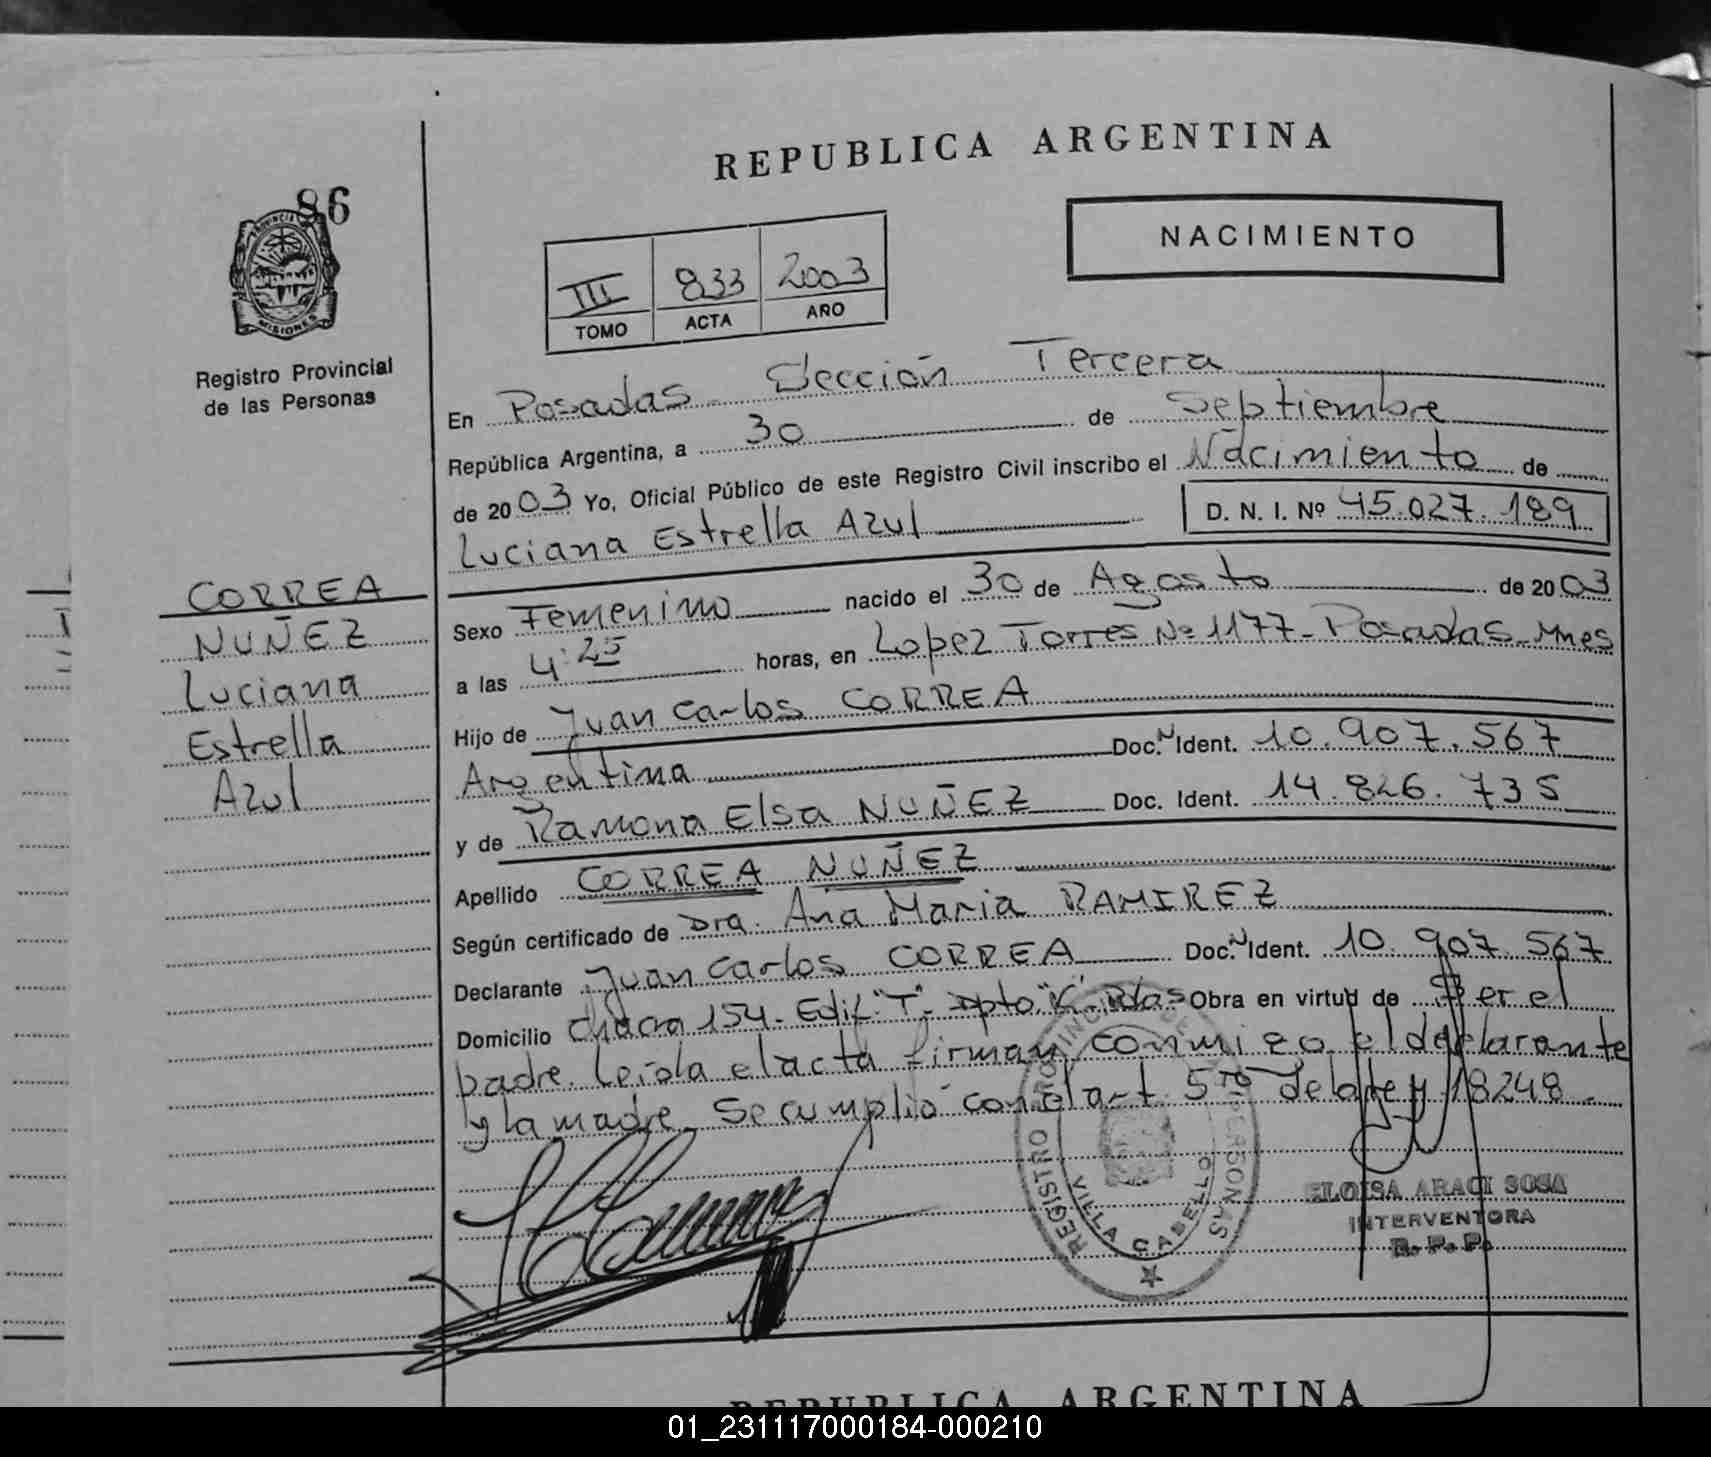 REPUBLICA ARGENTINA
86
PROVINCIA
MISIONES
Registro Provincial
de las Personas
NACIMIENTO
III 833 2003
TOMO ACTA AÑO
En Posadas Sección Tercera
República Argentina, a 30 de Septiembre
de 2003 Yo, Oficial Público de este Registro Civil inscribo el Nacimiento de
Luciana Estrella Azul
D. N. I. Nº 45.027.189
CORREA
NUÑEZ
Luciana
Estrella
Azul
Sexo Femenino nacido el 30 de Agosto de 2003
a las 4:25 horas, en Lopez Torres Nº 1177- Posadas- Mnes
Hijo de Juan Carlos CORREA
Argentina Doc.N Ident. 10.907.567
y de Ramona Elsa NUÑEZ Doc. Ident. 14.826.735
Apellido CORREA NUÑEZ
Según certificado de Dra. Ana Maria RAMIREZ
Declarante Juan Carlos CORREA Doc.N Ident. 10.907.567
Domicilio Chacra 154- Edif. "T"- Dpto "K"- Pdas- Obra en virtud de Ser el
padre. Leida el acta firman conmigo el declarante
y la madre. Se cumplió con el art. 5to de la ley 18248.-
REGISTRO PROVINCIAL DE LAS PERSONAS
VILLA CABELLO
ELOISA ARACI SOSA
INTERVENTORA
R. P. P.
REPUBLICA ARGENTINA
01_231117000184-000210